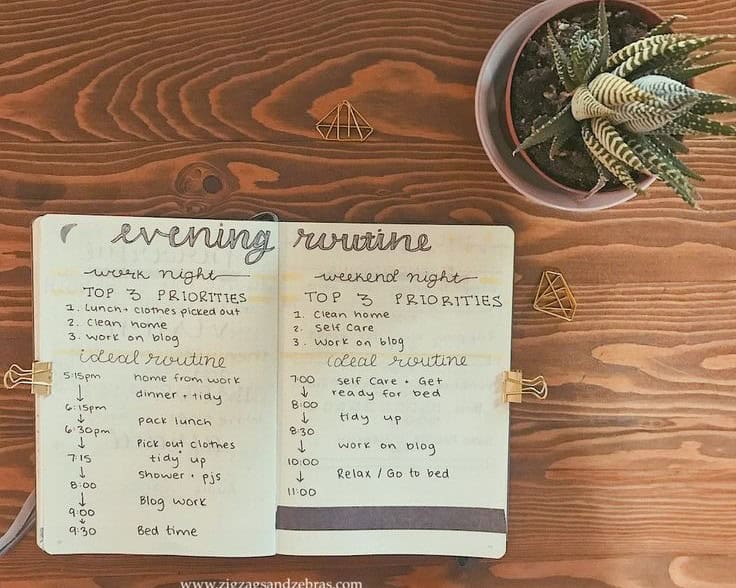 evening routine
work night
TOP 3 PRIORITIES
1. Lunch + clothes picked out
2. Clean home
3. work on blog
ideal routine
5:15pm home from work
↓ dinner + tidy
6:15pm
↓ pack lunch
6:30pm
↓ Pick out clothes
7:15 tidy up
↓ shower + pjs
8:00
↓ Blog work
9:00
↓
9:30 Bed time
weekend night
TOP 3 PRIORITIES
1. Clean home
2. Self Care
3. Work on blog
ideal routine
7:00 Self Care + Get
↓ ready for bed
8:00
↓ tidy up
8:30
↓ work on blog
10:00
↓ Relax / Go to bed
11:00
www.zigzagsandzebras.com